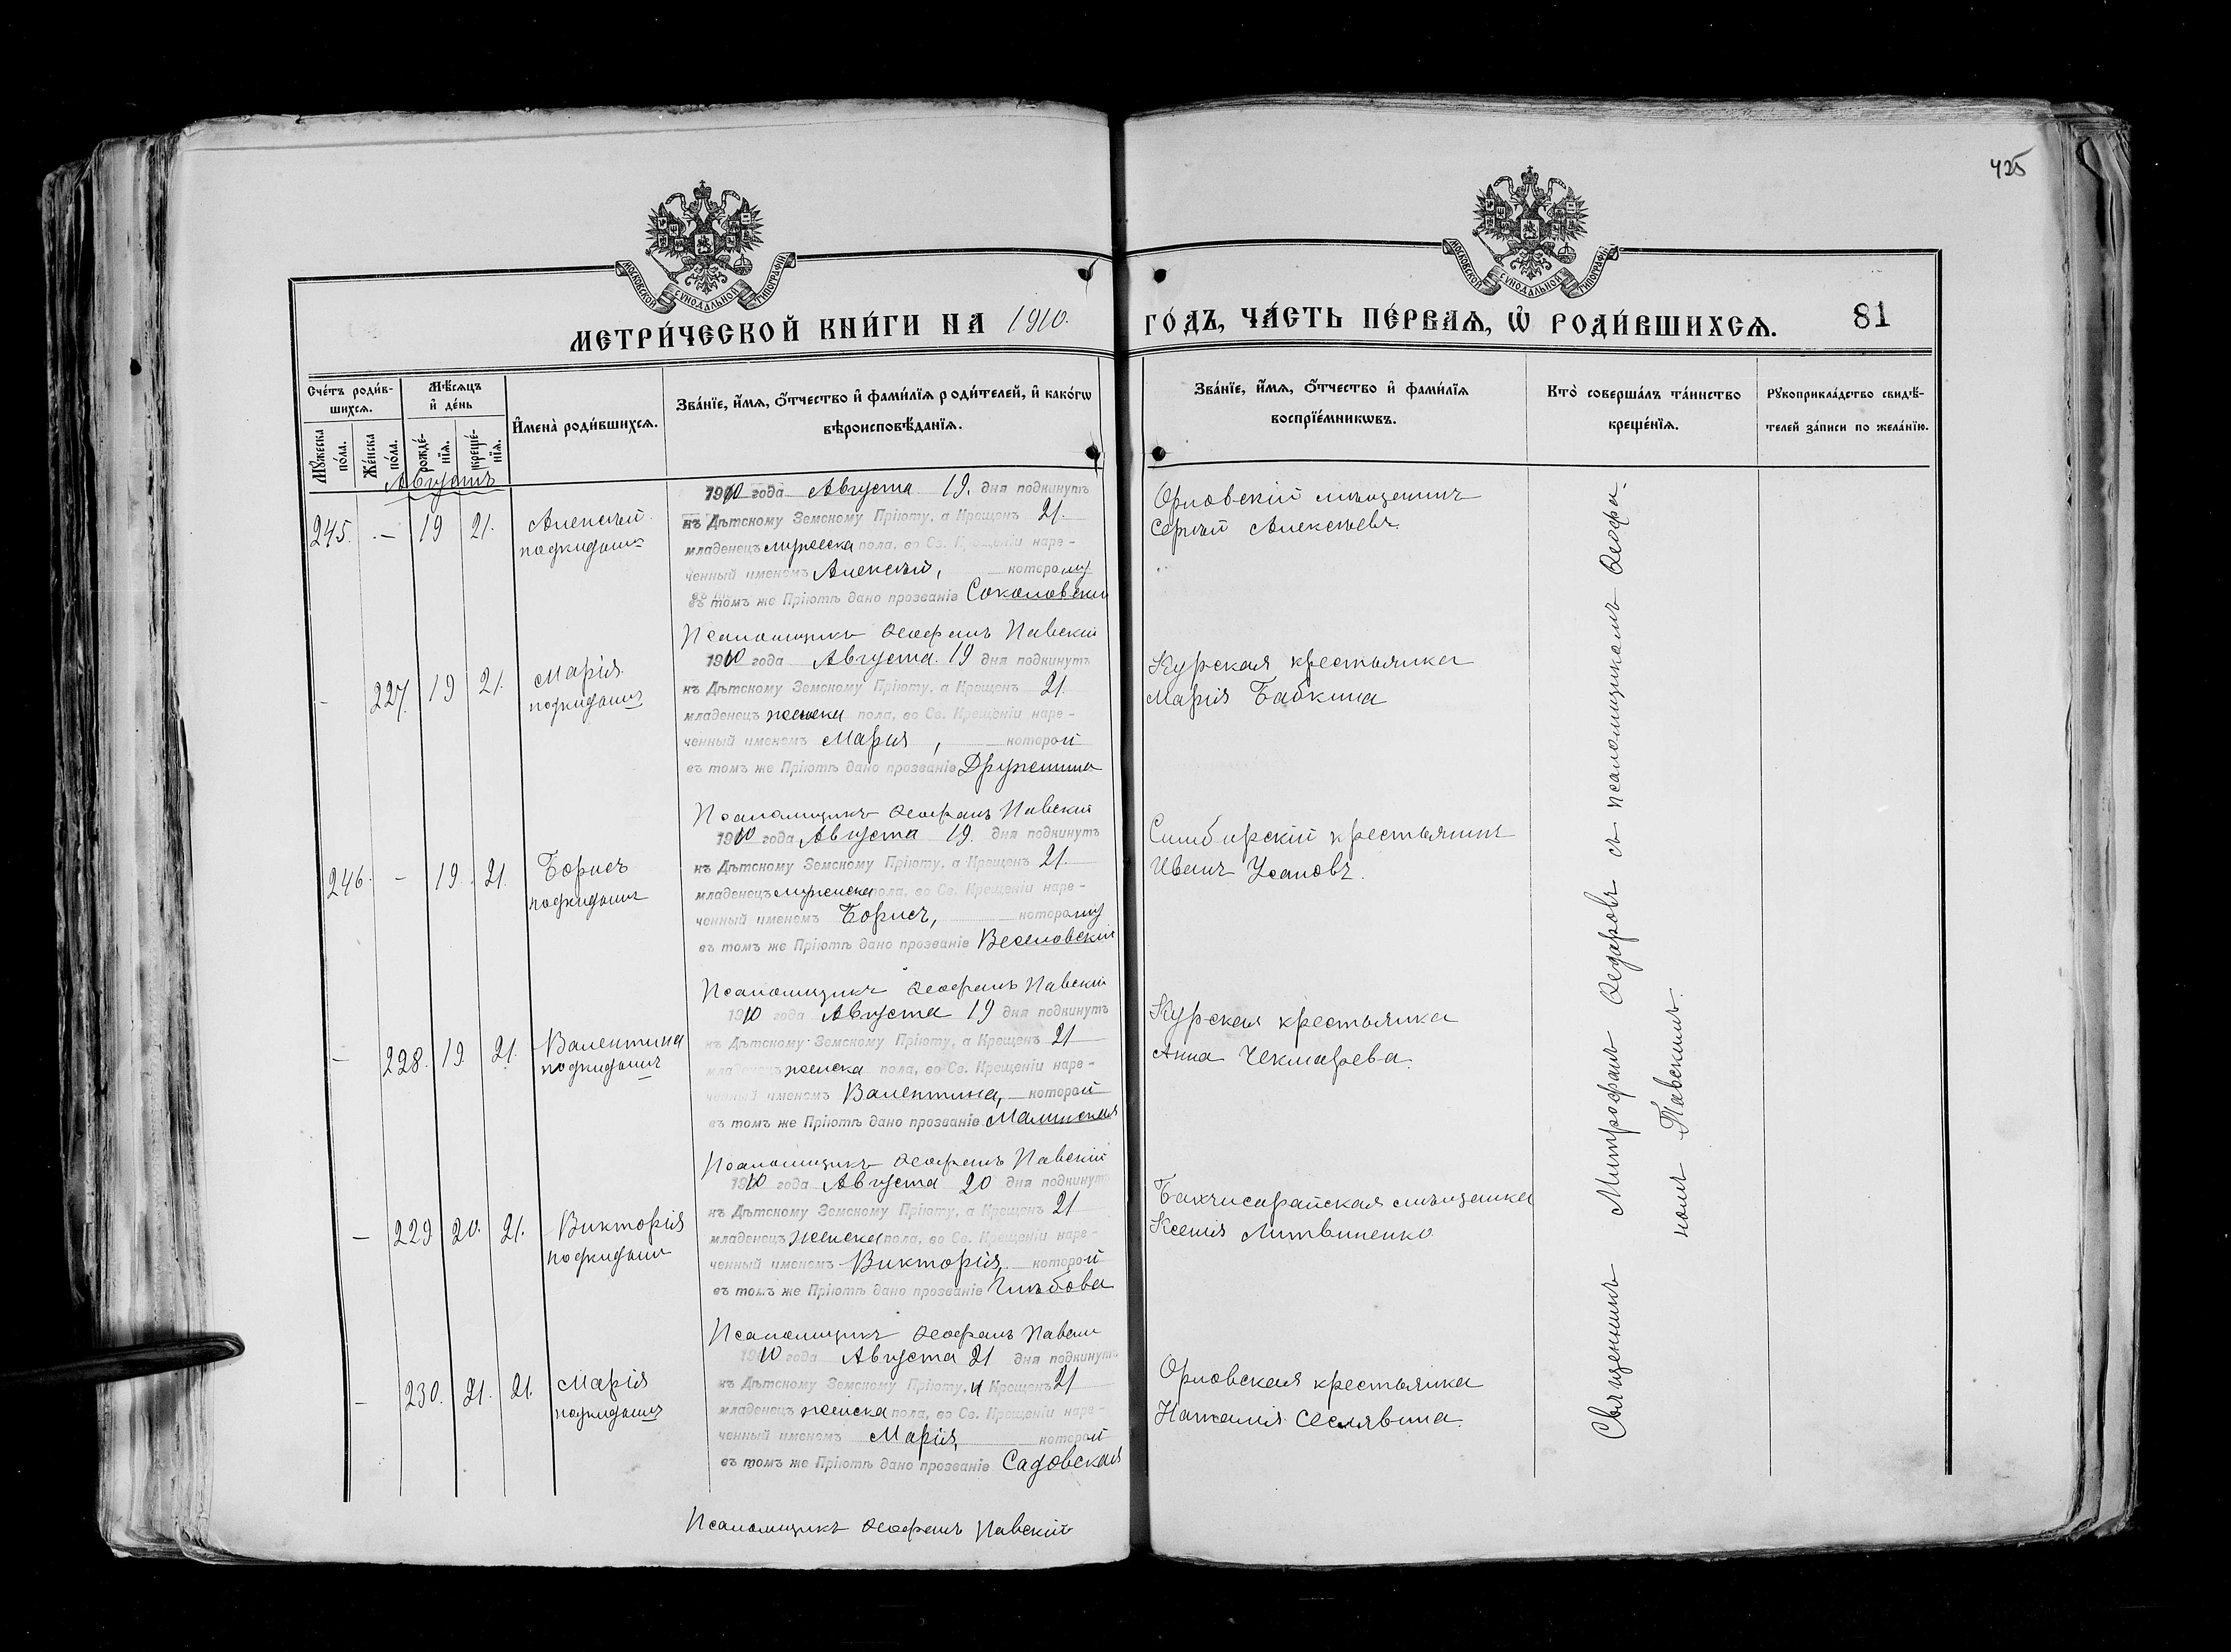 425
МОСКОВСКОЙ СѴНОДАЛЬНОЙ ТИПОГРАФІИ
МОСКОВСКОЙ СѴНОДАЛЬНОЙ ТИПОГРАФІИ
МЕТРИ́ЧЕСКОЙ КНИ́ГИ НА 1910. ГО́ДЪ, ЧА́СТЬ ПЕ́РВАѦ, Ѽ РОДИ́ВШИХСѦ. 81
Сче́тъ роди́в-
шихсѧ.
Мꙋ́жеска
по́ла.
Же́нска
по́ла.
Мѣ́сѧцъ
и҆ де́нь
рожде́-
нїѧ.
креще́-
нїѧ.
И҆мена̀ роди́вшихсѧ.
Зва́нїе, и҆́мѧ, ѻ҆́тчество и҆ фами́лїѧ роди́телей, и҆ како́гѡ
вѣроисповѣ́данїѧ.
Зва́нїе, и҆́мѧ, ѻ҆́тчество и҆ фами́лїѧ
воспрїе́мникѡвъ.
Кто̀ соверша́лъ та́инство
креще́нїѧ.
Рꙋкоприкла́дство свидѣ́-
телей за́писи по жела́нїю.
Августъ
245. - 19 21. Алексѣй
подкидышъ
1910 года Августа 19. дня подкинутъ
къ Дѣтскому Земскому Пріюту, а Крещенъ 21.
младенецъ мужеска пола, во Св. Крещеніи наре-
ченный именемъ Алексѣй, которому
въ томъ же Пріютѣ дано прозваніе Соколовскій
Псаломщикъ Ѳеофанъ Павскій
Орловскій мѣщанинъ
Сергѣй Алексѣевъ.
- 227. 19 21. Марія
подкидышъ
1910 года Августа. 19 дня подкинутъ
къ Дѣтскому Земскому Пріюту, а Крещенъ 21.
младенецъ женска пола, во Св. Крещеніи наре-
ченный именемъ Марія, которой
въ томъ же Пріютѣ дано прозваніе Дружинина
Псаломщикъ Ѳеофанъ Павскій
Курская крестьянка
Марія Бабкина
246. - 19. 21. Борисъ
подкидышъ
1910 года Августа 19. дня подкинутъ
къ Дѣтскому Земскому Пріюту, а Крещенъ 21.
младенецъ мужеска пола, во Св. Крещеніи наре-
ченный именемъ Борисъ, которому
въ томъ же Пріютѣ дано прозваніе Веселовскій
Псаломщикъ Ѳеофанъ Павскій
Симбирскій крестьянинъ
Иванъ Усановъ.
- 228. 19. 21. Валентина
подкидышъ
1910 года Августа 19 дня подкинутъ
къ Дѣтскому Земскому Пріюту, а Крещенъ 21
младенецъ женска пола, во Св. Крещеніи наре-
ченный именемъ Валентина, которой
въ томъ же Пріютѣ дано прозваніе Малинская
Псаломщикъ Ѳеофанъ Павскій
Курская крестьянка
Анна Чекмарева.
- 229 20. 21. Викторія
подкидышъ
1910 года Августа 20 дня подкинутъ
къ Дѣтскому Земскому Пріюту, а Крещенъ 21
младенецъ женска пола, во Св. Крещеніи наре-
ченный именемъ Викторія, которой
въ томъ же Пріютѣ дано прозваніе Глѣбова
Псаломщикъ Ѳеофанъ Павскій
Бахчисарайская мѣщанка
Ксенія Литвиненко.
- 230. 21. 21. Марія
подкидышъ
1910 года Августа 21 дня подкинутъ
къ Дѣтскому Земскому Пріюту, и Крещенъ 21
младенецъ женска пола, во Св. Крещеніи наре-
ченный именемъ Марія, которой
въ томъ же Пріютѣ дано прозваніе Садовская
Псаломщикъ Ѳеофанъ Павскій
Орловская крестьянка
Наталія Селявина.
Священникъ Митрофанъ Ѳедоровъ съ псаломщикомъ Ѳеофа-
номъ Павскимъ.